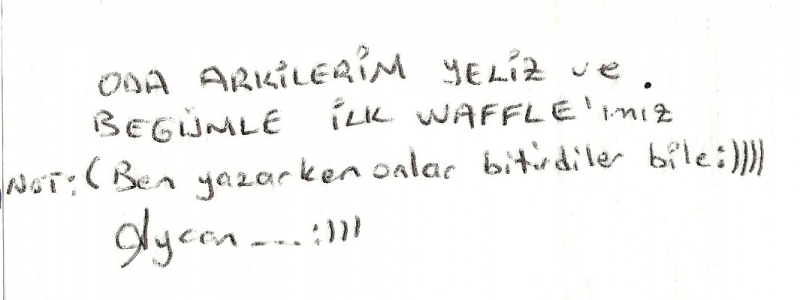 ODA ARKİLERİM YELİZ ve
BEGÜMLE İLK WAFFLE'ımız
NOT: (Ben yazarken onlar bitirdiler bile:))))
Olycan ....:)))